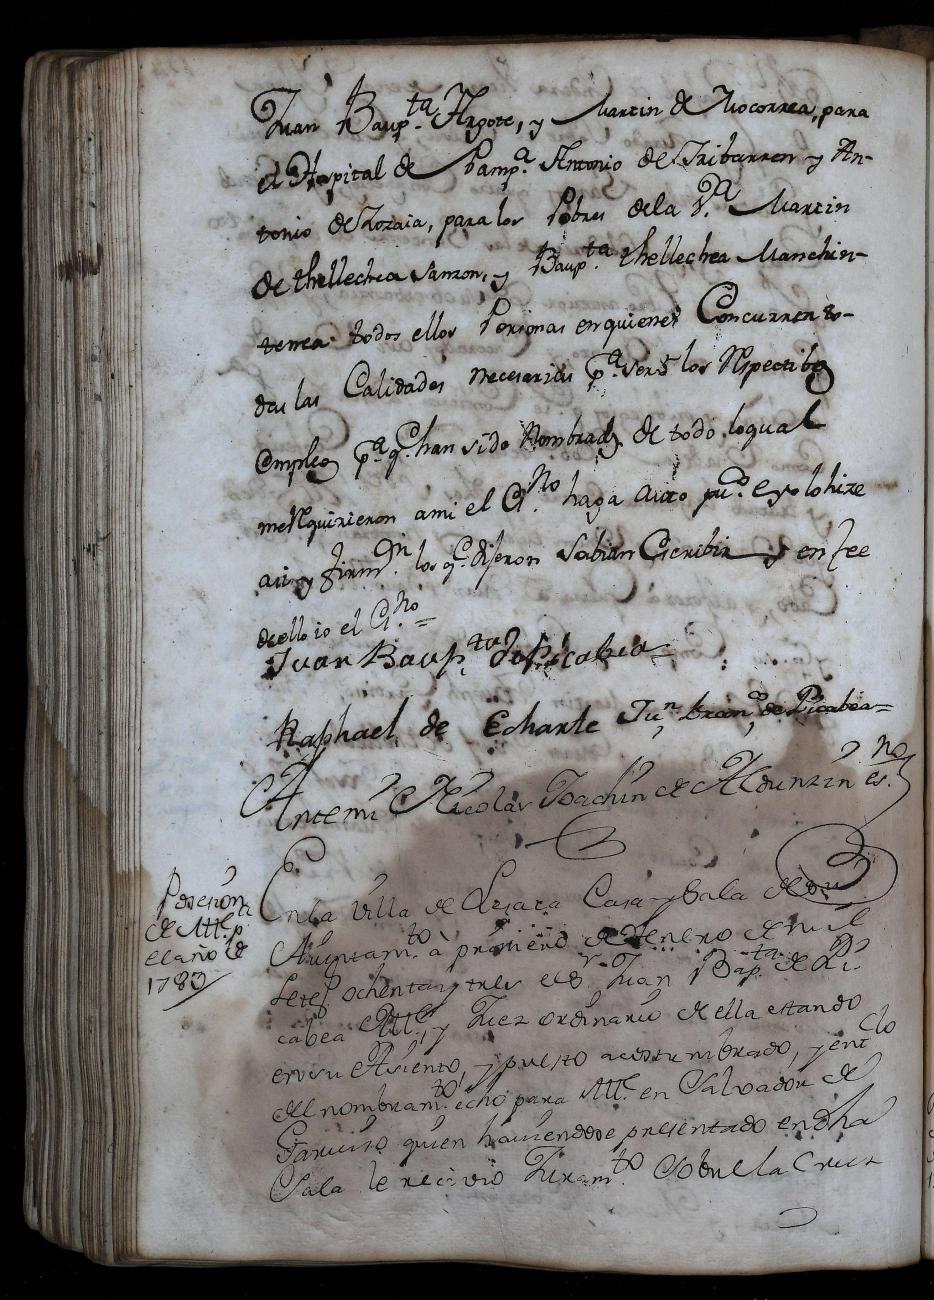 Juan Baup.ta Argote, y Martin de Mocorrea, para
el Hospital de Pamp.a Antonio de Iribarren y An-
tonio de Zozaia, para los Pobres dela V.a Martin
de thellechea Sanzon, y Baup.ta thellechea Manchin-
tenea todos ellos Personas en quienes Concurren to-
das las Calidades necesarias p.a ser los Respectibos
Empleos p.a q.e han sido Nombrados de todo loqual
me Requirieron ami el Es.no haga auto pu.co e yo lo hize
asi y firm.n los q.e dijeron Sabian Escribir y en fee
de ello io el Es.no =
Juan Baup.ta de Picabea
Raphael de Echarte Ju.n fran.co de Picabea =
Antemi Nicolas Joachin de Aldunzin es.no
Posesion
de Alc.e p.a
el año de
1783
En la Villa de Lesaca Casa y Sala de su
Aiuntam.to à primero de Henero de mil
setez.s ochenta y tres el S.r Juan Bap.ta de Pi-
cabea Alc.e y Juez ordinario de ella estando
en su Asiento, y puesto acostumbrado, y en
del nombram.to echo para Alc.e en Salvador de
quien haviendose presentado en dha
Sala le recivio Juram.to Sobre la Cruz